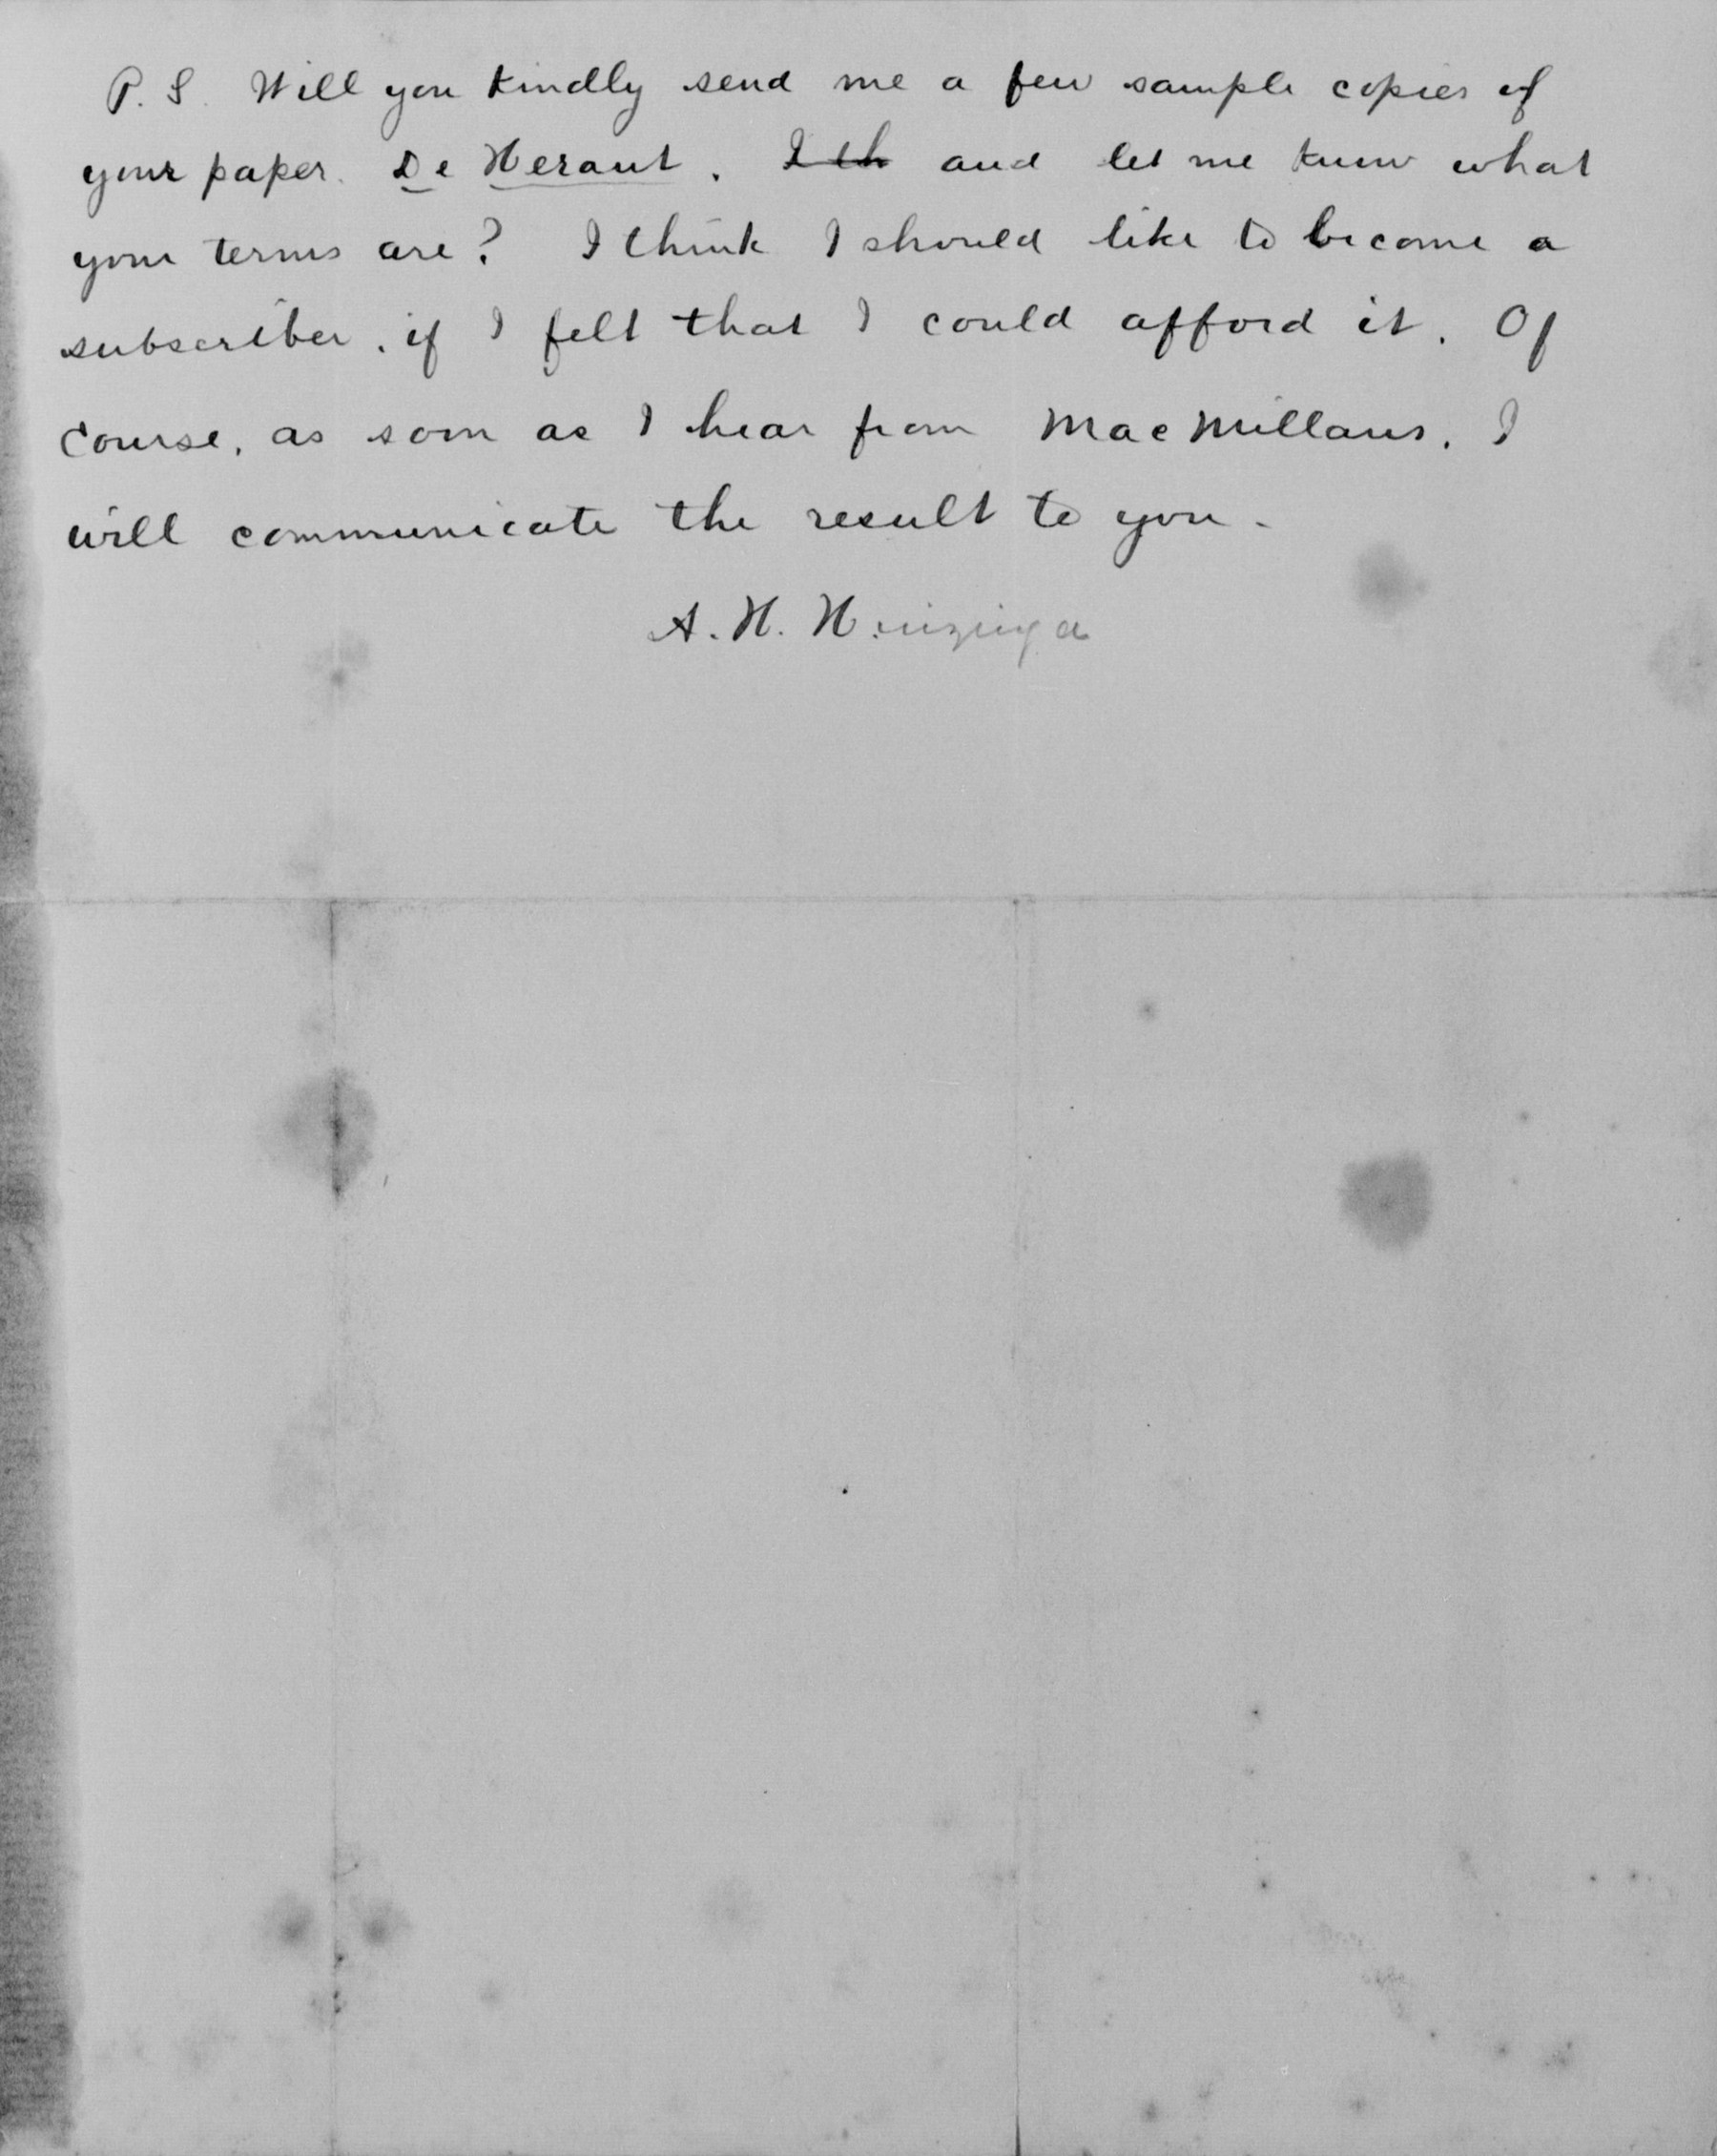 P.S. Will you kindly send me a few sample copies of
your paper. De Heraut. I th and let me know what
your terms are? I think I should like to become a
subscriber, if I felt that I could afford it. Of
course, as soon as I hear from MacMillans, I
will communicate the result to you.
A. H. Huizinga